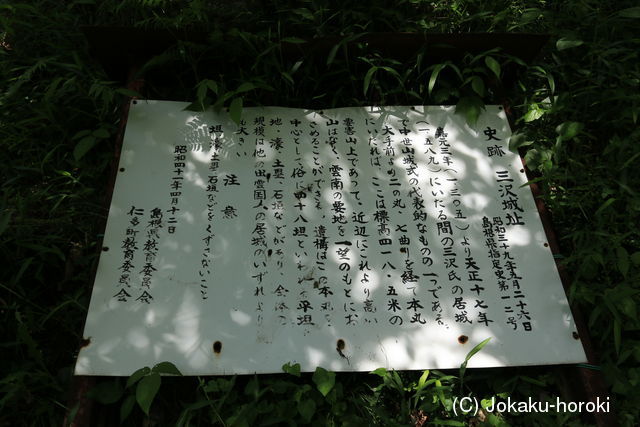 史跡 三沢城址
昭和三十九年五月二十六日
島根県指定史第一二号
嘉元三年(一三〇五)より天正十七年
(一五八九)にいたる間の三沢氏の居城
で中世山城式の代表的なものの一つである
大手前から二の丸、七曲りを経て本丸
にいたれば、ここは標高四一八・五米の
要害山上であって、近辺にこれより高い
山はなく、雲南の要地を一望のもとにお
さめることができる。遺構はこの本丸を
中心として俗に四十八垣といわれる平坦
地・濠・土塁・石垣などがあり、全体の
規模は他の出雲国人の居城のいずれより
も大きい
注意
垣・濠・土塁・石垣などをくずさないこと
昭和四十一年四月十二日
島根県教育委員会
仁多町教育委員会
(C) Jokaku-horoki